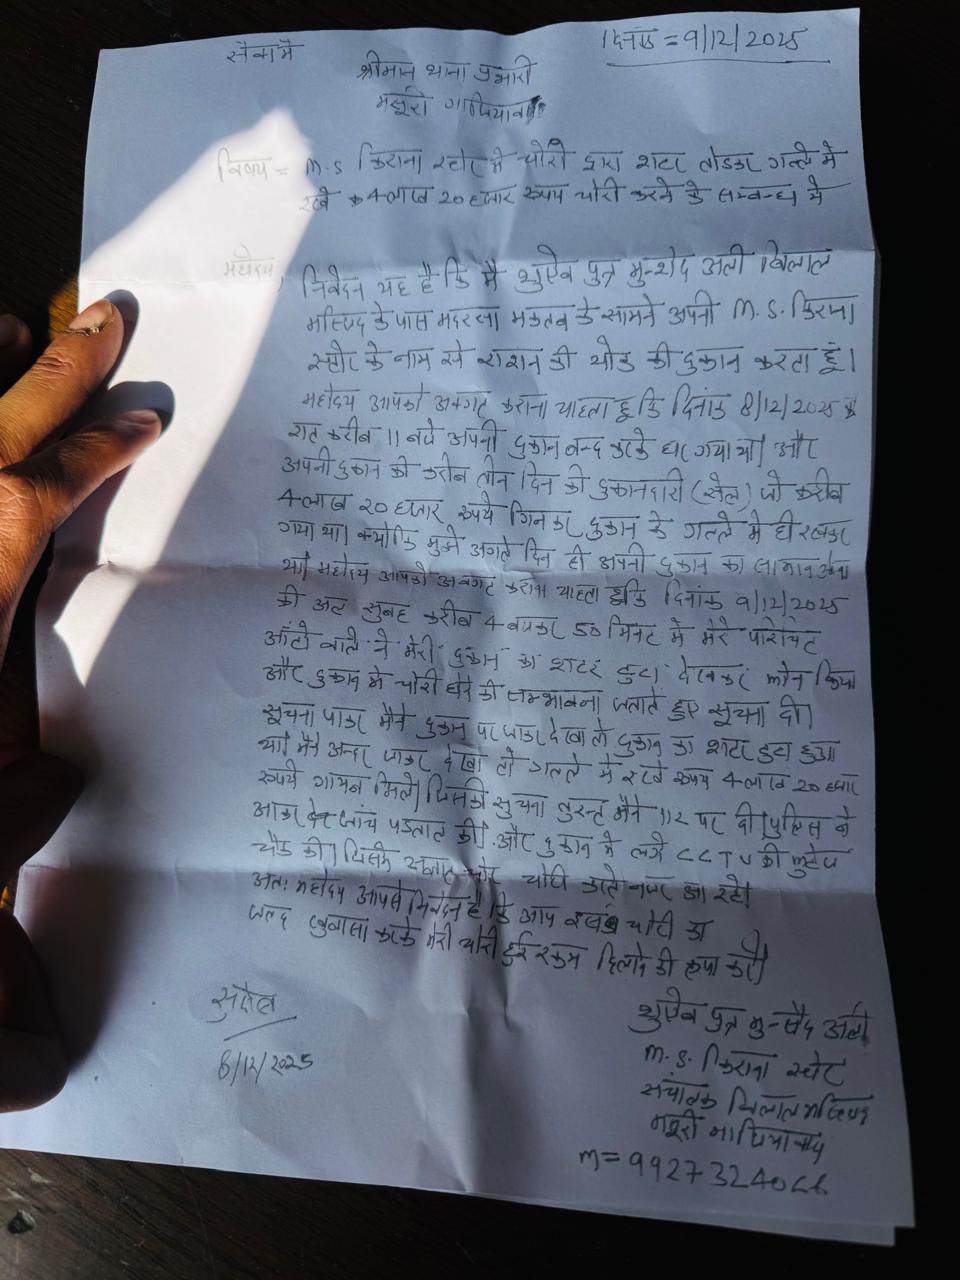 दिनांक = 9/12/2025
सेवामे
श्रीमान थाना प्रभारी
मसूरी गाजियाबाद
विषय = M.S किराना स्टोर मे चोरो द्वारा शटर तोडकर गल्ले मे
रखे 4 लाख 20 हजार रूपय चोरी करने के सम्बन्ध मे
महोदय,
निवेदन यह है कि मै शुऐब पुत्र मुन्शेद अली बिलाल
मस्जिद के पास मदरसा मकतब के सामने अपनी M.S. किराना
स्टोर के नाम से राशन की थोक की दुकान करता हूं।
महोदय आपको अवगत कराना चाहता हू कि दिनांक 8/12/2025
रात करीब 11 बजे अपनी दुकान बन्द करके घर गया था। और
अपनी दुकान की करीब तीन दिन की दुकानदारी (सेल) जो करीब
4 लाख 20 हजार रूपये गिनकर दुकान के गल्ले मे ही रखकर
गया था। क्योकि मुझे अगले दिन ही अपनी दुकान का सामान लेना
था। महोदय आपको अवगत कराना चाहता हू कि दिनांक 9/12/2025
की अल सुबह करीब 4 बजकर 50 मिनट मे मेरे परिचित
ऑटो वाले ने मेरी दुकान का शटर टुटा देखकर फोन किया
और दुकान मे चोरी होने की सम्भावना जताते हुए सूचना दी।
सूचना पाकर मैने दुकान पर जाकर देखा तो दुकान का शटर टुटा हुआ
था। मैने अन्दर जाकर देखा तो गल्ले मे रखे रूपय 4 लाख 20 हजार
रूपये गायब मिले। जिसकी सुचना तुरन्त मैने 112 पर दी। पुलिस ने
आकर जांच पडताल की। और दुकान मे लगे CCTV की फुटेज
चैक की। जिसमे चोर चोरी करते नजर आ रहे।
अतः महोदय आपसे निवेदन है कि आप चोरी का
जल्द खुलासा करके मेरी चोरी हुई रकम दिलाने की कृपा करे।
8/12/2025
शुऐब पुत्र मुन्सैद अली
M.S. किराना स्टोर
संचालक बिलाल मस्जिद
मसूरी गाजियाबाद
M = 99273240